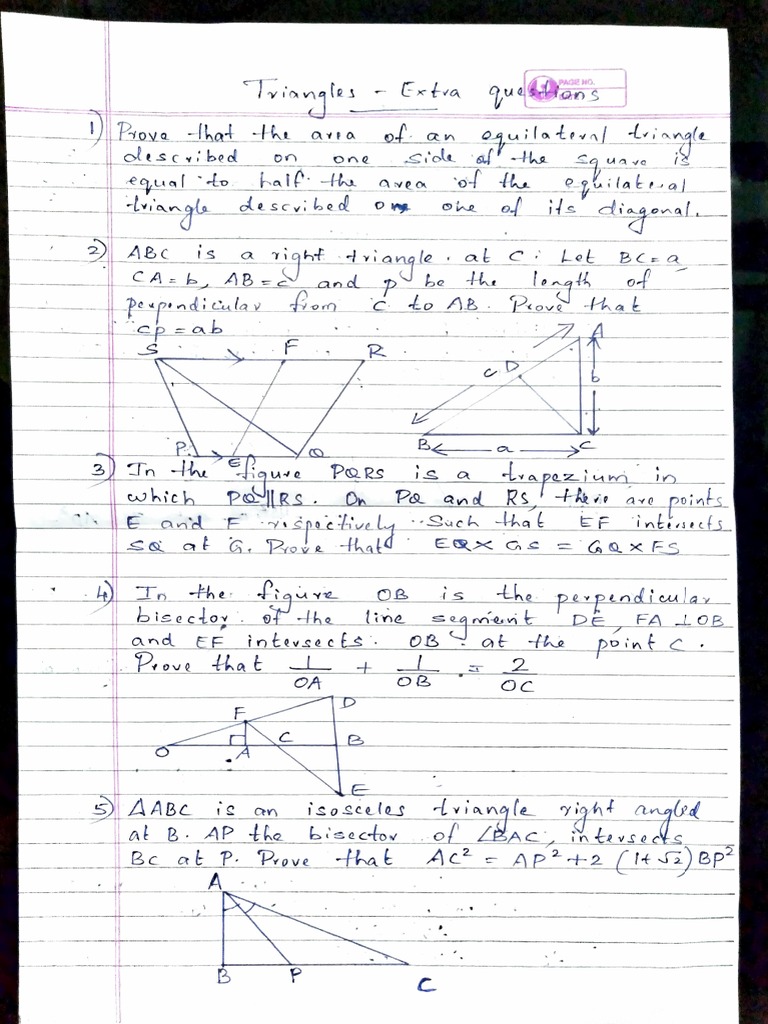 PAGE NO.
Triangles - Extra questions
1) Prove that the area of an equilateral triangle
described on one side of the square is
equal to half the area of the equilateral
triangle described on one of its diagonal.
2) ABC is a right triangle. at C. Let BC = a
CA = b, AB = c and p be the length of
perpendicular from C to AB. Prove that
cp = ab
S F R A
c D b
P E Q B a C
3) In the figure PQRS is a trapezium in
which PQ||RS. On PQ and RS, there are points
E and F respectively Such that EF intersects
SQ at G. Prove that EQ × GS = GQ × FS
4) In the figure OB is the perpendicular
bisector of the line segment DE, FA ⊥ OB
and EF intersects OB at the point C.
Prove that 1/OA + 1/OB = 2/OC
D
F
O A C B
E
5) ΔABC is an isosceles triangle right angled
at B. AP the bisector of ∠BAC, intersects
BC at P. Prove that AC² = AP² + 2 (1+√2) BP²
A
B P C